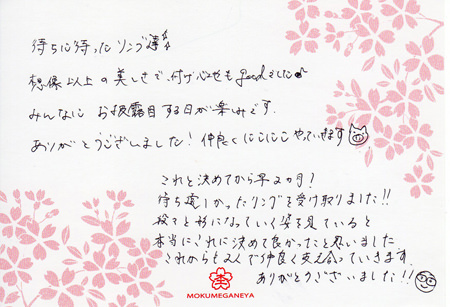 待ちに待ったリング達
想像以上の美しさで、付け心地もgoodでした♪
みんなにお披露目する日が楽しみです。
ありがとうございました!仲良くにこにこやっていきます
これと決めてから早2ヵ月?
待ち遠しかったリングを受け取りました!!
段々と形になっていく姿を見ていると
本当にこれに決めて良かったと思いました
これからも2人で仲良く支え合っていきます。
ありがとうございました!!
MOKUMEGANEYA